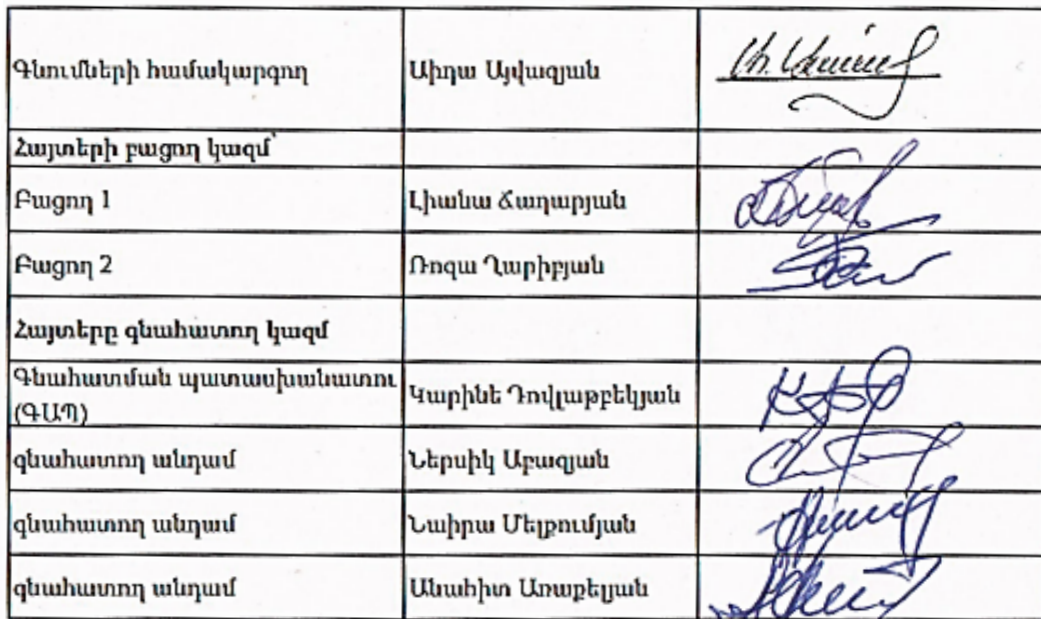 Գնումների համակարգող Աիդա Այվազյան
Հայտերի բացող կազմ՝
Բացող 1 Լիանա Ճաղարյան
Բացող 2 Ռոզա Ղարիբյան
Հայտերը գնահատող կազմ
Գնահատման պատասխանատու
(ԳԱՊ) Կարինե Դովլաթբեկյան
գնահատող անդամ Ներսիկ Աբազյան
գնահատող անդամ Նաիրա Մելքումյան
գնահատող անդամ Անահիտ Առաքելյան